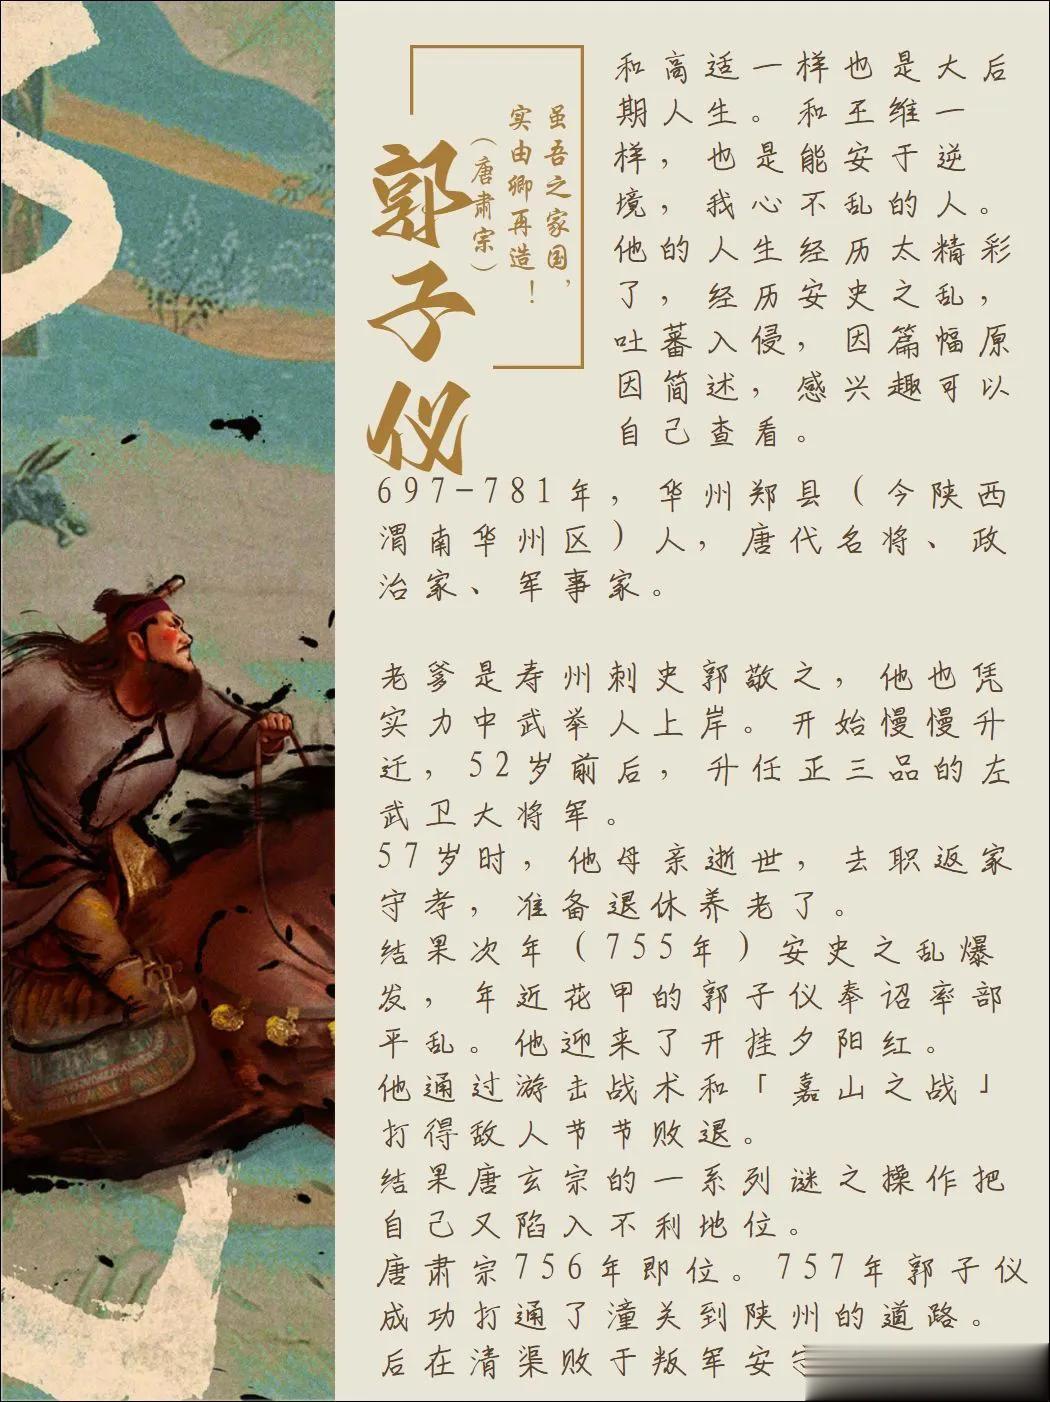 郭子仪
虽吾之家国，
实由卿再造！
（唐肃宗）
和高适一样也是大后
期人生。和王维一
样，也是能安于逆
境，我心不乱的人。
他的人生经历太精彩
了，经历安史之乱，
吐蕃入侵，因篇幅原
因简述，感兴趣可以
自己查看。
697-781年，华州郑县（今陕西
渭南华州区）人，唐代名将、政
治家、军事家。
老爹是寿州刺史郭敬之，他也凭
实力中武举人上岸。开始慢慢升
迁，52岁前后，升任正三品的左
武卫大将军。
57岁时，他母亲逝世，去职返家
守孝，准备退休养老了。
结果次年（755年）安史之乱爆
发，年近花甲的郭子仪奉诏率部
平乱。他迎来了开挂夕阳红。
他通过游击战术和「嘉山之战」
打得敌人节节败退。
结果唐玄宗的一系列谜之操作把
自己又陷入不利地位。
唐肃宗756年即位。757年郭子仪
成功打通了潼关到陕州的道路。
后在清渠败于叛军安